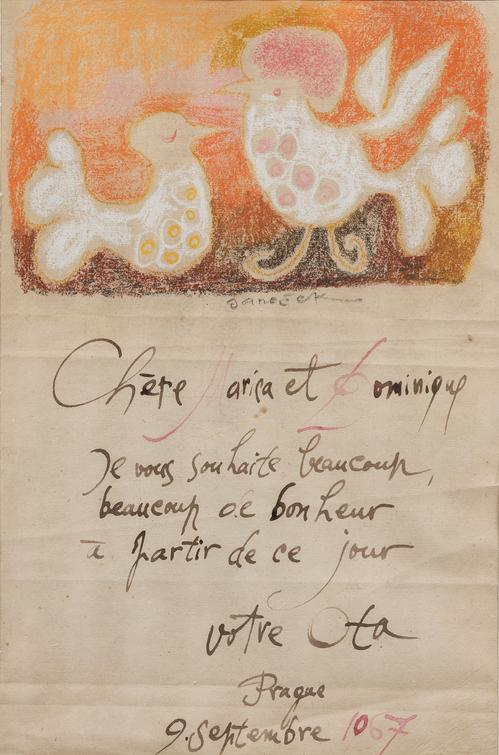 Janeček
Chère Marisa et Dominique
Je vous souhaite beaucoup,
beaucoup de bonheur
à partir de ce jour
votre Ota
Prague
9.septembre 1967